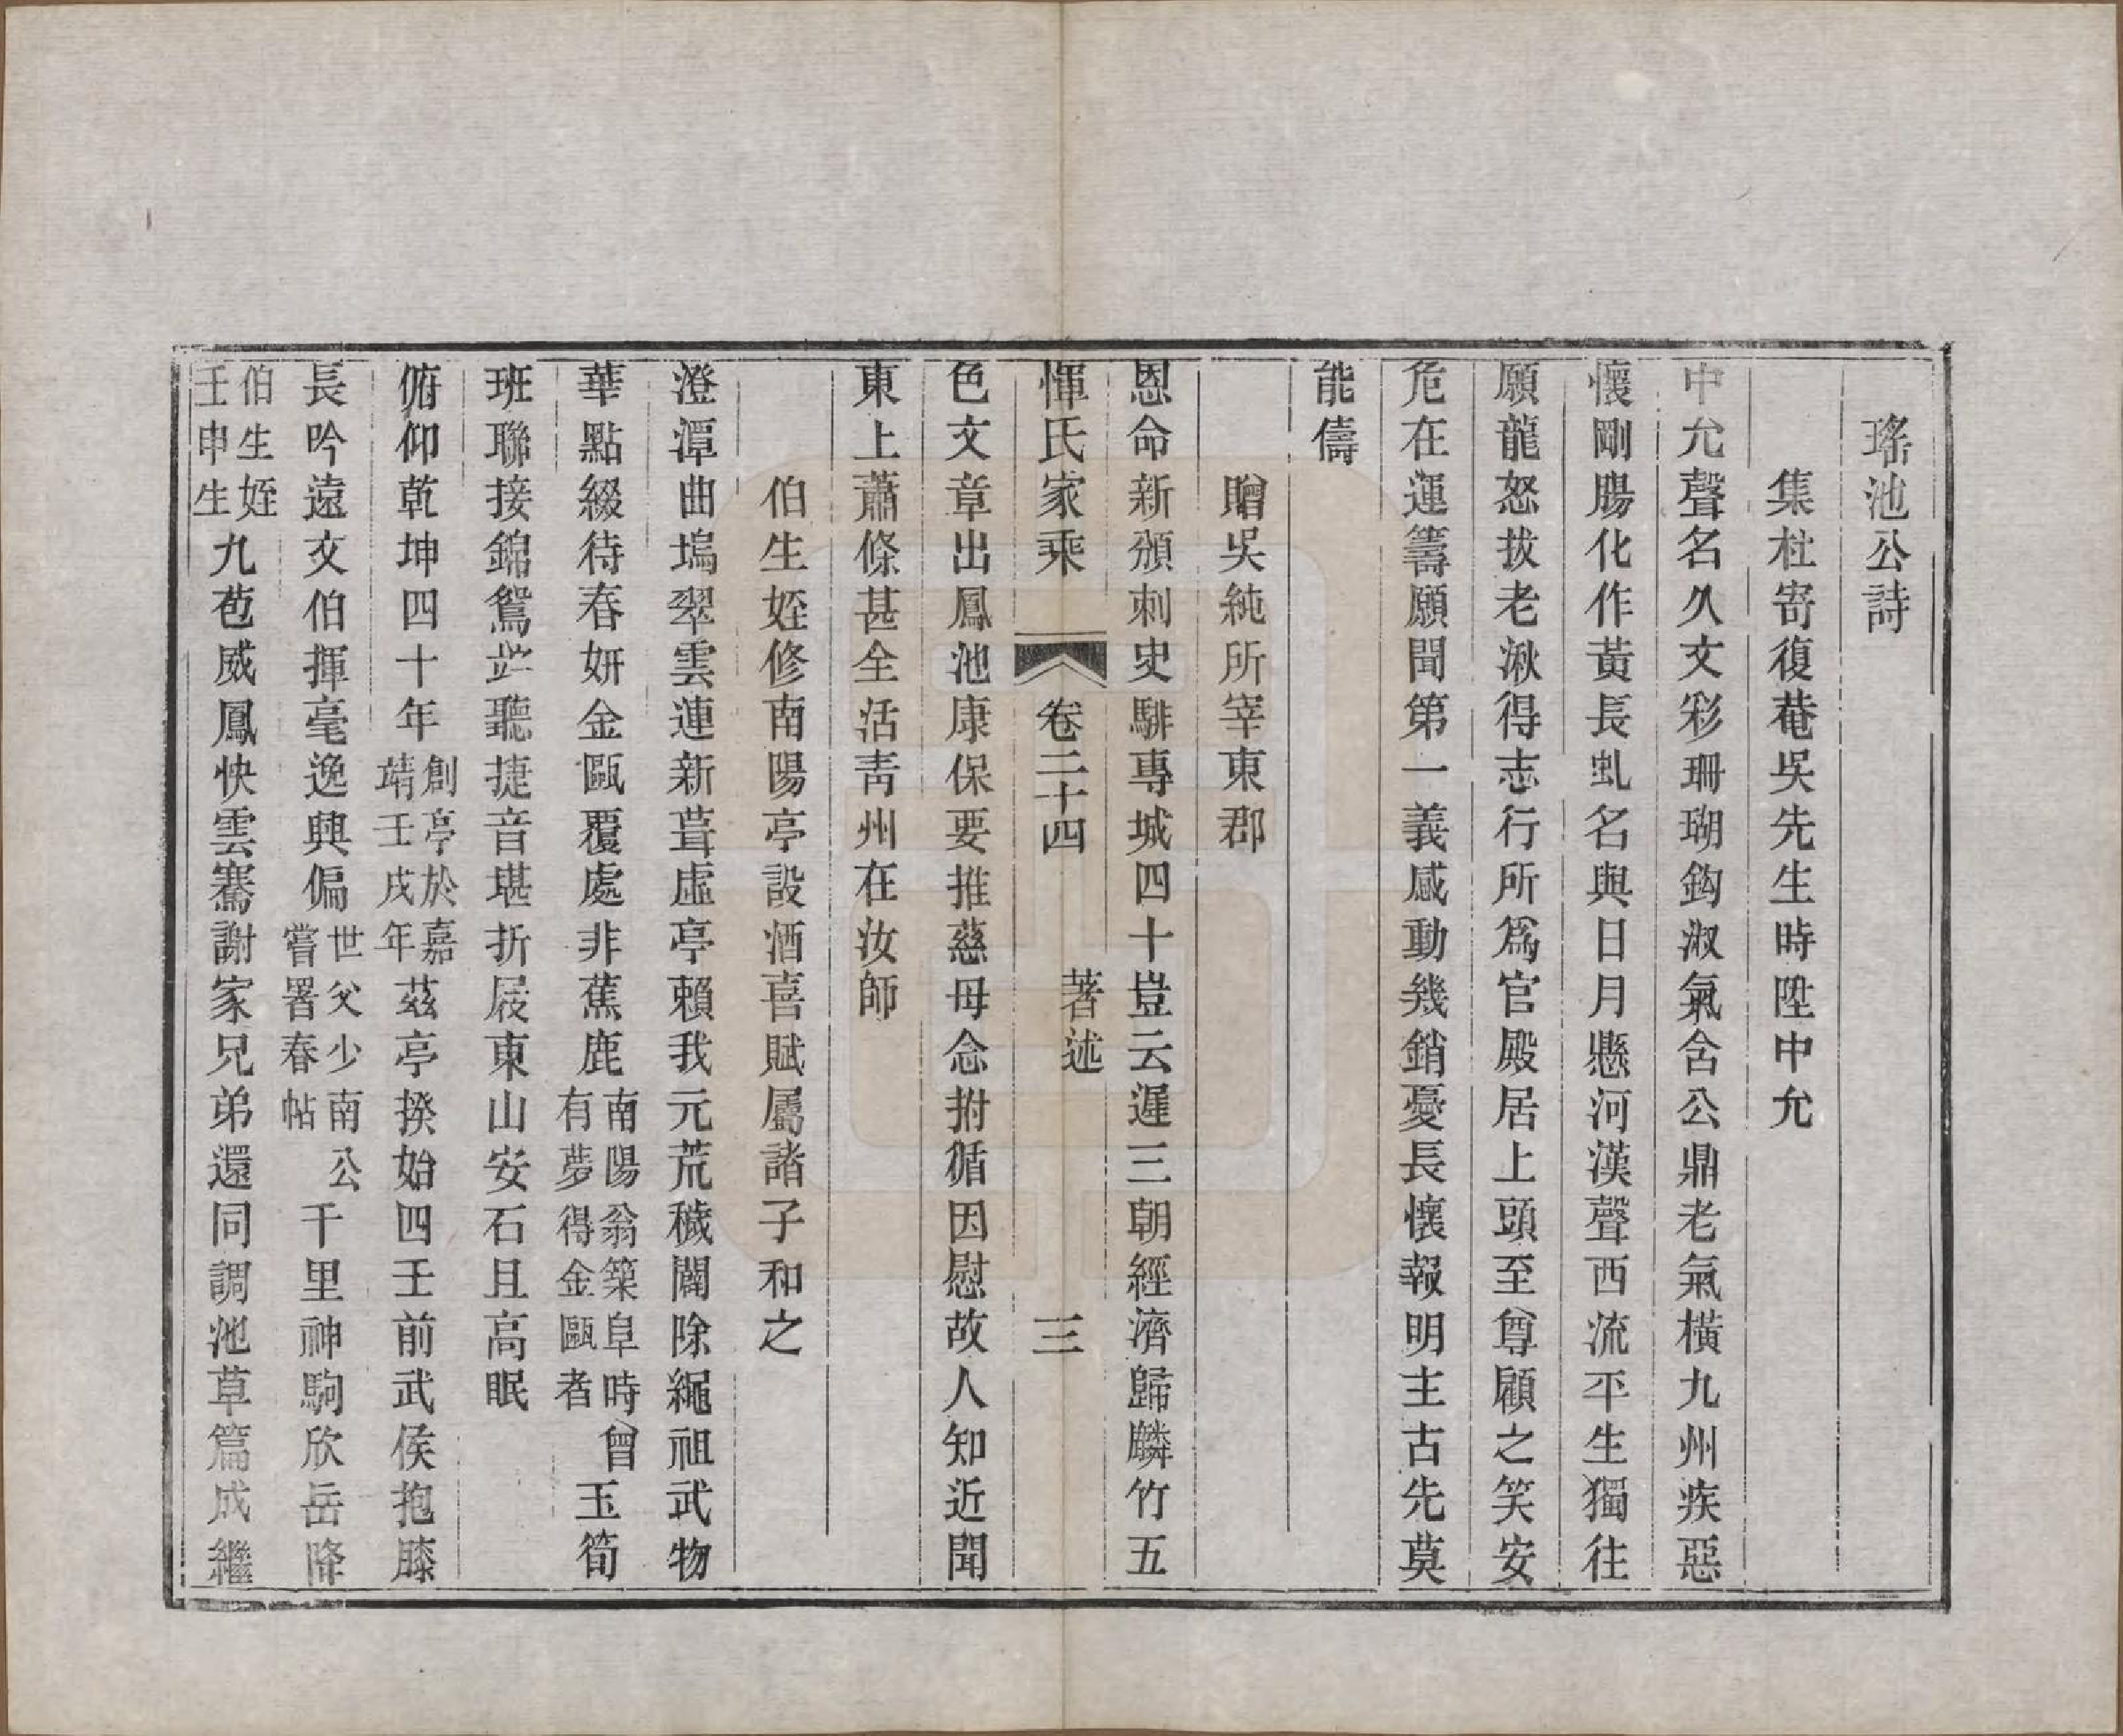 瑤池公詩
集杜寄復菴吳先生時陞中允
中允聲名久文彩珊瑚鈎淑氣含公鼎老氣橫九州疾惡
懷剛腸化作黃長虬名與日月懸河漢聲西流平生獨往
願龍怒拔老湫得志行所爲官殿居上頭至尊顧之笑安
危在運籌願聞第一義感動幾銷憂長懷報明主古先莫
能儔
贈吳純所宰東郡
恩命新頒刺史騑專城四十豈云遲三朝經濟歸麟竹五
惲氏家乘 卷二十四 著述 三
色文章出鳳池康保要推慈母念拊循因慰故人知近聞
東上蕭條甚全活靑州在汝師
伯生姪修南陽亭設酒喜賦屬諸子和之
澄潭曲塢翠雲連新葺虛亭賴我元荒穢闢除繩祖武物
華點綴待春妍金甌覆處非蕉鹿南陽翁築阜時曾有夢得金甌者玉筍
班聯接錦鴛竚聽捷音堪折屐東山安石且高眠
俯仰乾坤四十年創亭於嘉靖壬戌年茲亭揆始四壬前武侯抱膝
長吟遠文伯揮毫逸興偏世父少南公嘗署春帖千里神駒欣岳降
伯生姪壬申生九苞威鳳快雲騫謝家兄弟還同調池草篇成繼